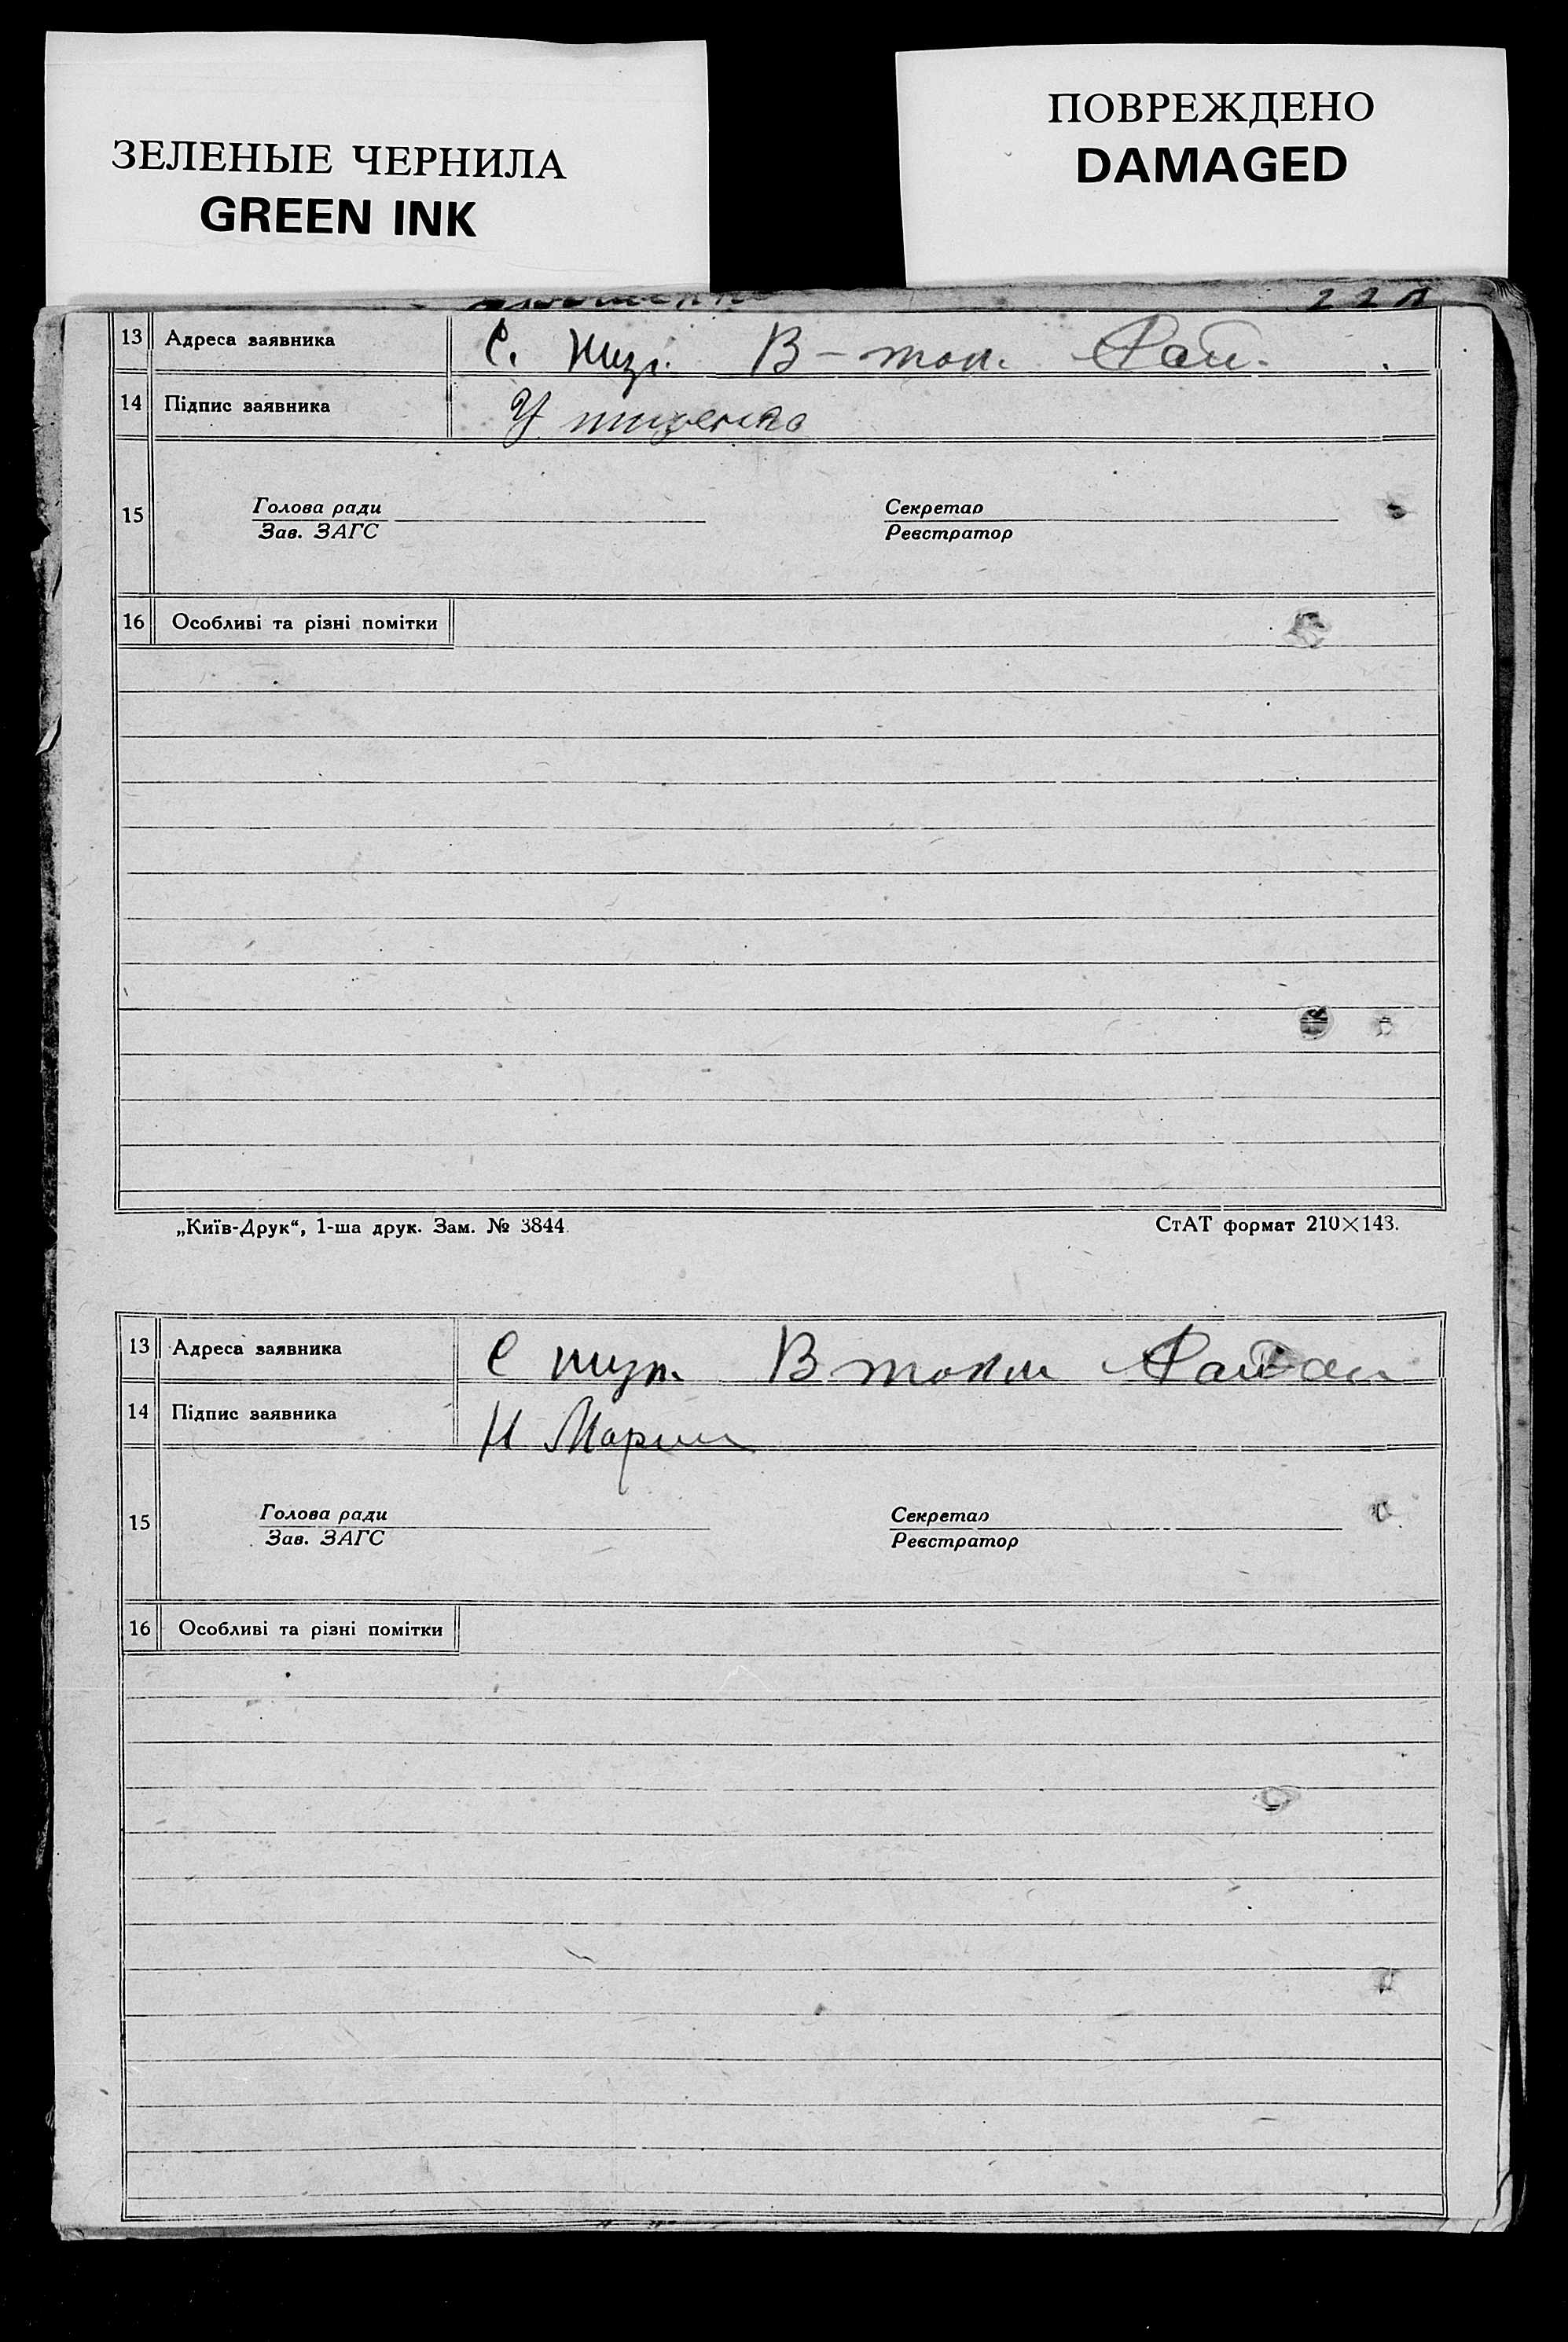 ЗЕЛЕНЫЕ ЧЕРНИЛА
GREEN INK
ПОВРЕЖДЕНО
DAMAGED
13 Адреса заявника С. Низ. В-ток. Рай.
14 Підпис заявника
15 Голова ради Секретар
Зав. ЗАГС Реєстратор
16 Особливі та різні помітки
„Київ-Друк“, 1-ша друк. Зам. № 3844. СтАТ формат 210×143.
13 Адреса заявника С В токм
14 Підпис заявника Н
15 Голова ради Секретар
Зав. ЗАГС Реєстратор
16 Особливі та різні помітки